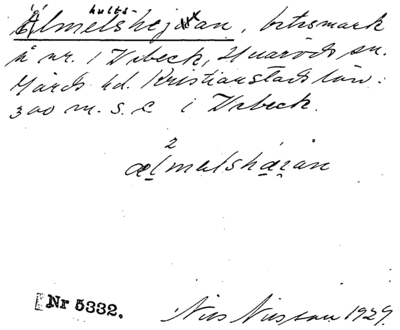 hults
Älmelshejan, betesmark
å nr. 1 Vrbeck, Huaröds sn.
Gärds hd. Kristianstads län.
300 m. s. ö i Vrbeck.
2
ælmelshæi̯an
Nr 5332.
Nils Nilsson 1929